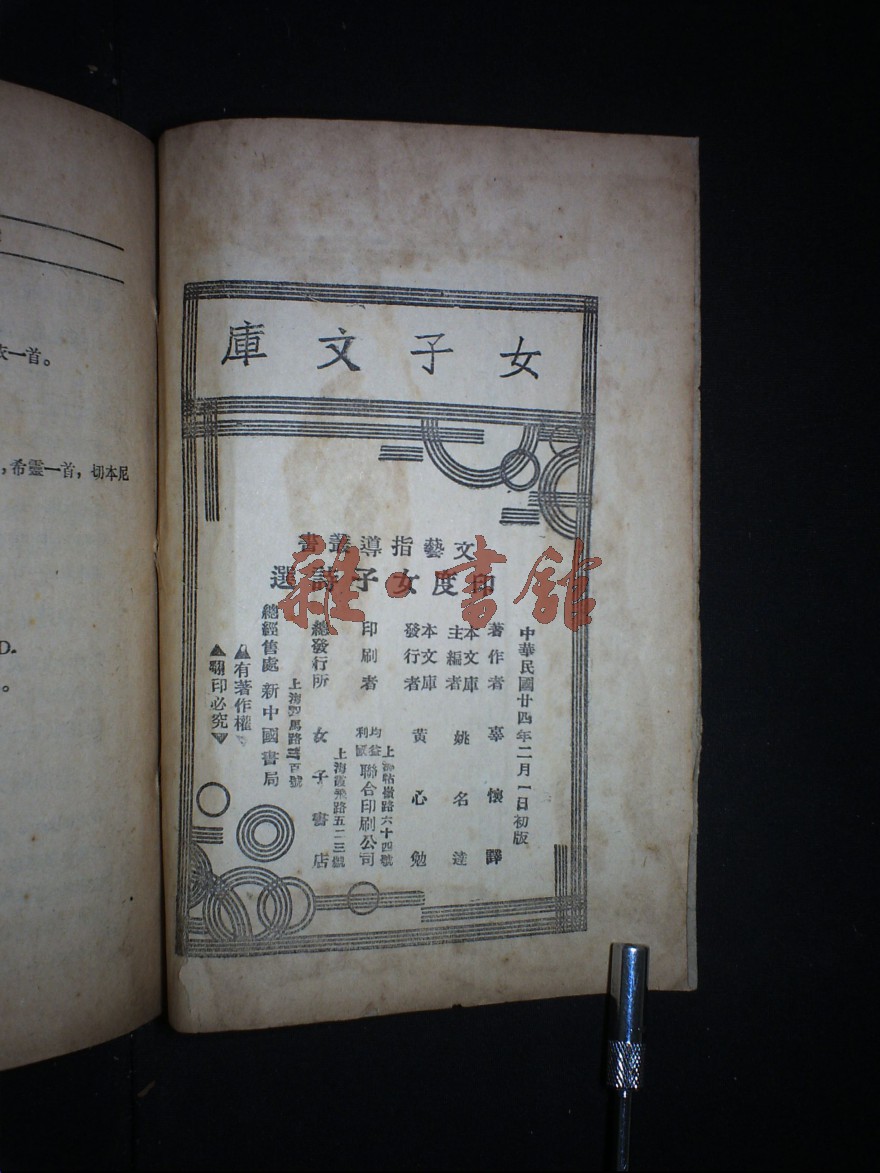 女子文庫
文藝指導叢書
印度女子詩選
中華民國廿四年二月一日初版
著作者 辜懷譯
本文庫主編者 姚名達
本文庫發行者 黃心勉
印刷者 均益利國聯合印刷公司
上海牯嶺路六十四號
上海霞飛路五二三號
總發行所 女子書店
上海四馬路三百號
總經售處 新中國書局
▲有著作權▼
▲翻印必究▼
雜·書館
衣一首。
,希靈一首,切本尼
D.
。